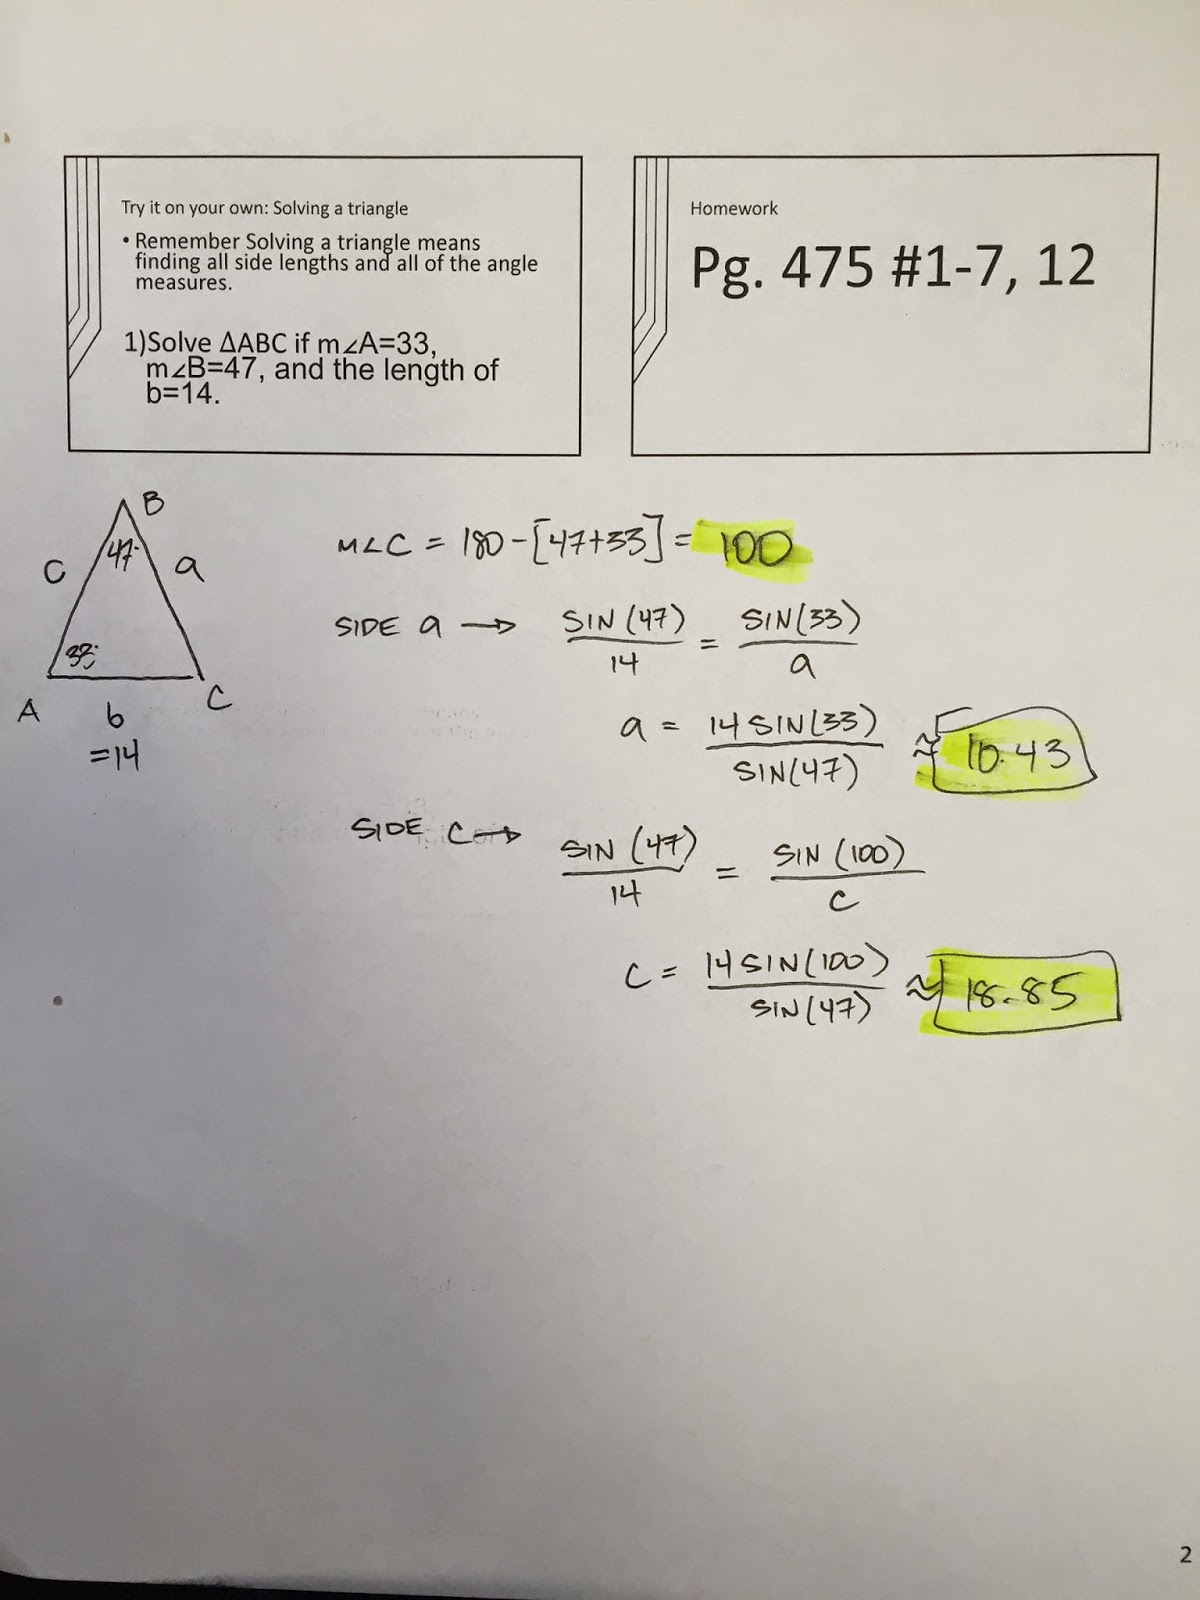 Try it on your own: Solving a triangle
• Remember Solving a triangle means
finding all side lengths and all of the angle
measures.
1)Solve ΔABC if m∠A=33,
m∠B=47, and the length of
b=14.
Homework
Pg. 475 #1-7, 12
B
47°
C a
33°
A C
b
=14
M∠C = 180-[47+33] = 100
SIDE a → SIN(47)/14 = SIN(33)/a
a = 14 SIN(33)/SIN(47) ≈ 10.43
SIDE C → SIN(47)/14 = SIN(100)/C
C = 14 SIN(100)/SIN(47) ≈ 18.85
2